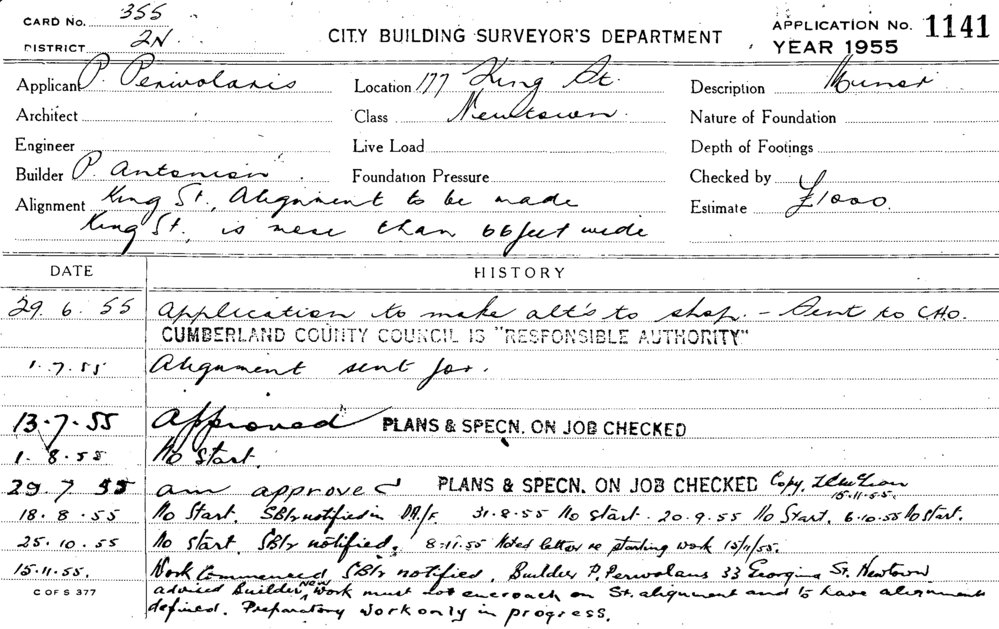 CARD No. 355
DISTRICT 2N
CITY BUILDING SURVEYOR'S DEPARTMENT
APPLICATION No. 1141
YEAR 1955
Applicant P. Perivolaris Location 177 King St. Description Minor
Architect Class Newtown Nature of Foundation
Engineer Live Load Depth of Footings
Builder P. Antonion Foundation Pressure Checked by
Alignment King St., Alignment to be made Estimate £1000.
King St., is more than 66 feet wide
DATE HISTORY
29. 6. 55 Application to make alt's to shop. - Sent to CHO.
CUMBERLAND COUNTY COUNCIL IS "RESPONSIBLE AUTHORITY"
1. 7. 55 Alignment sent for.
13. 7. 55 Approved PLANS & SPECN. ON JOB CHECKED
1. 8. 55 No Start.
29. 7. 55 am approved PLANS & SPECN. ON JOB CHECKED Copy.
15.11.55.
18. 8. 55 No Start. notified in 31.8.55 No start. 20.9.55 No Start. 6.10.55 No Start.
25. 10. 55 No Start. notified. 8.11.55 Noted letter re starting work 15/11/55.
15.11.55. Work Commenced notified, Builder P. Perivolaris 33 Georgina St. Newtown
advised Builder, NEW work must not encroach on St. alignment and to have alignment
C OF S 377
defined. Preparatory work only in progress.